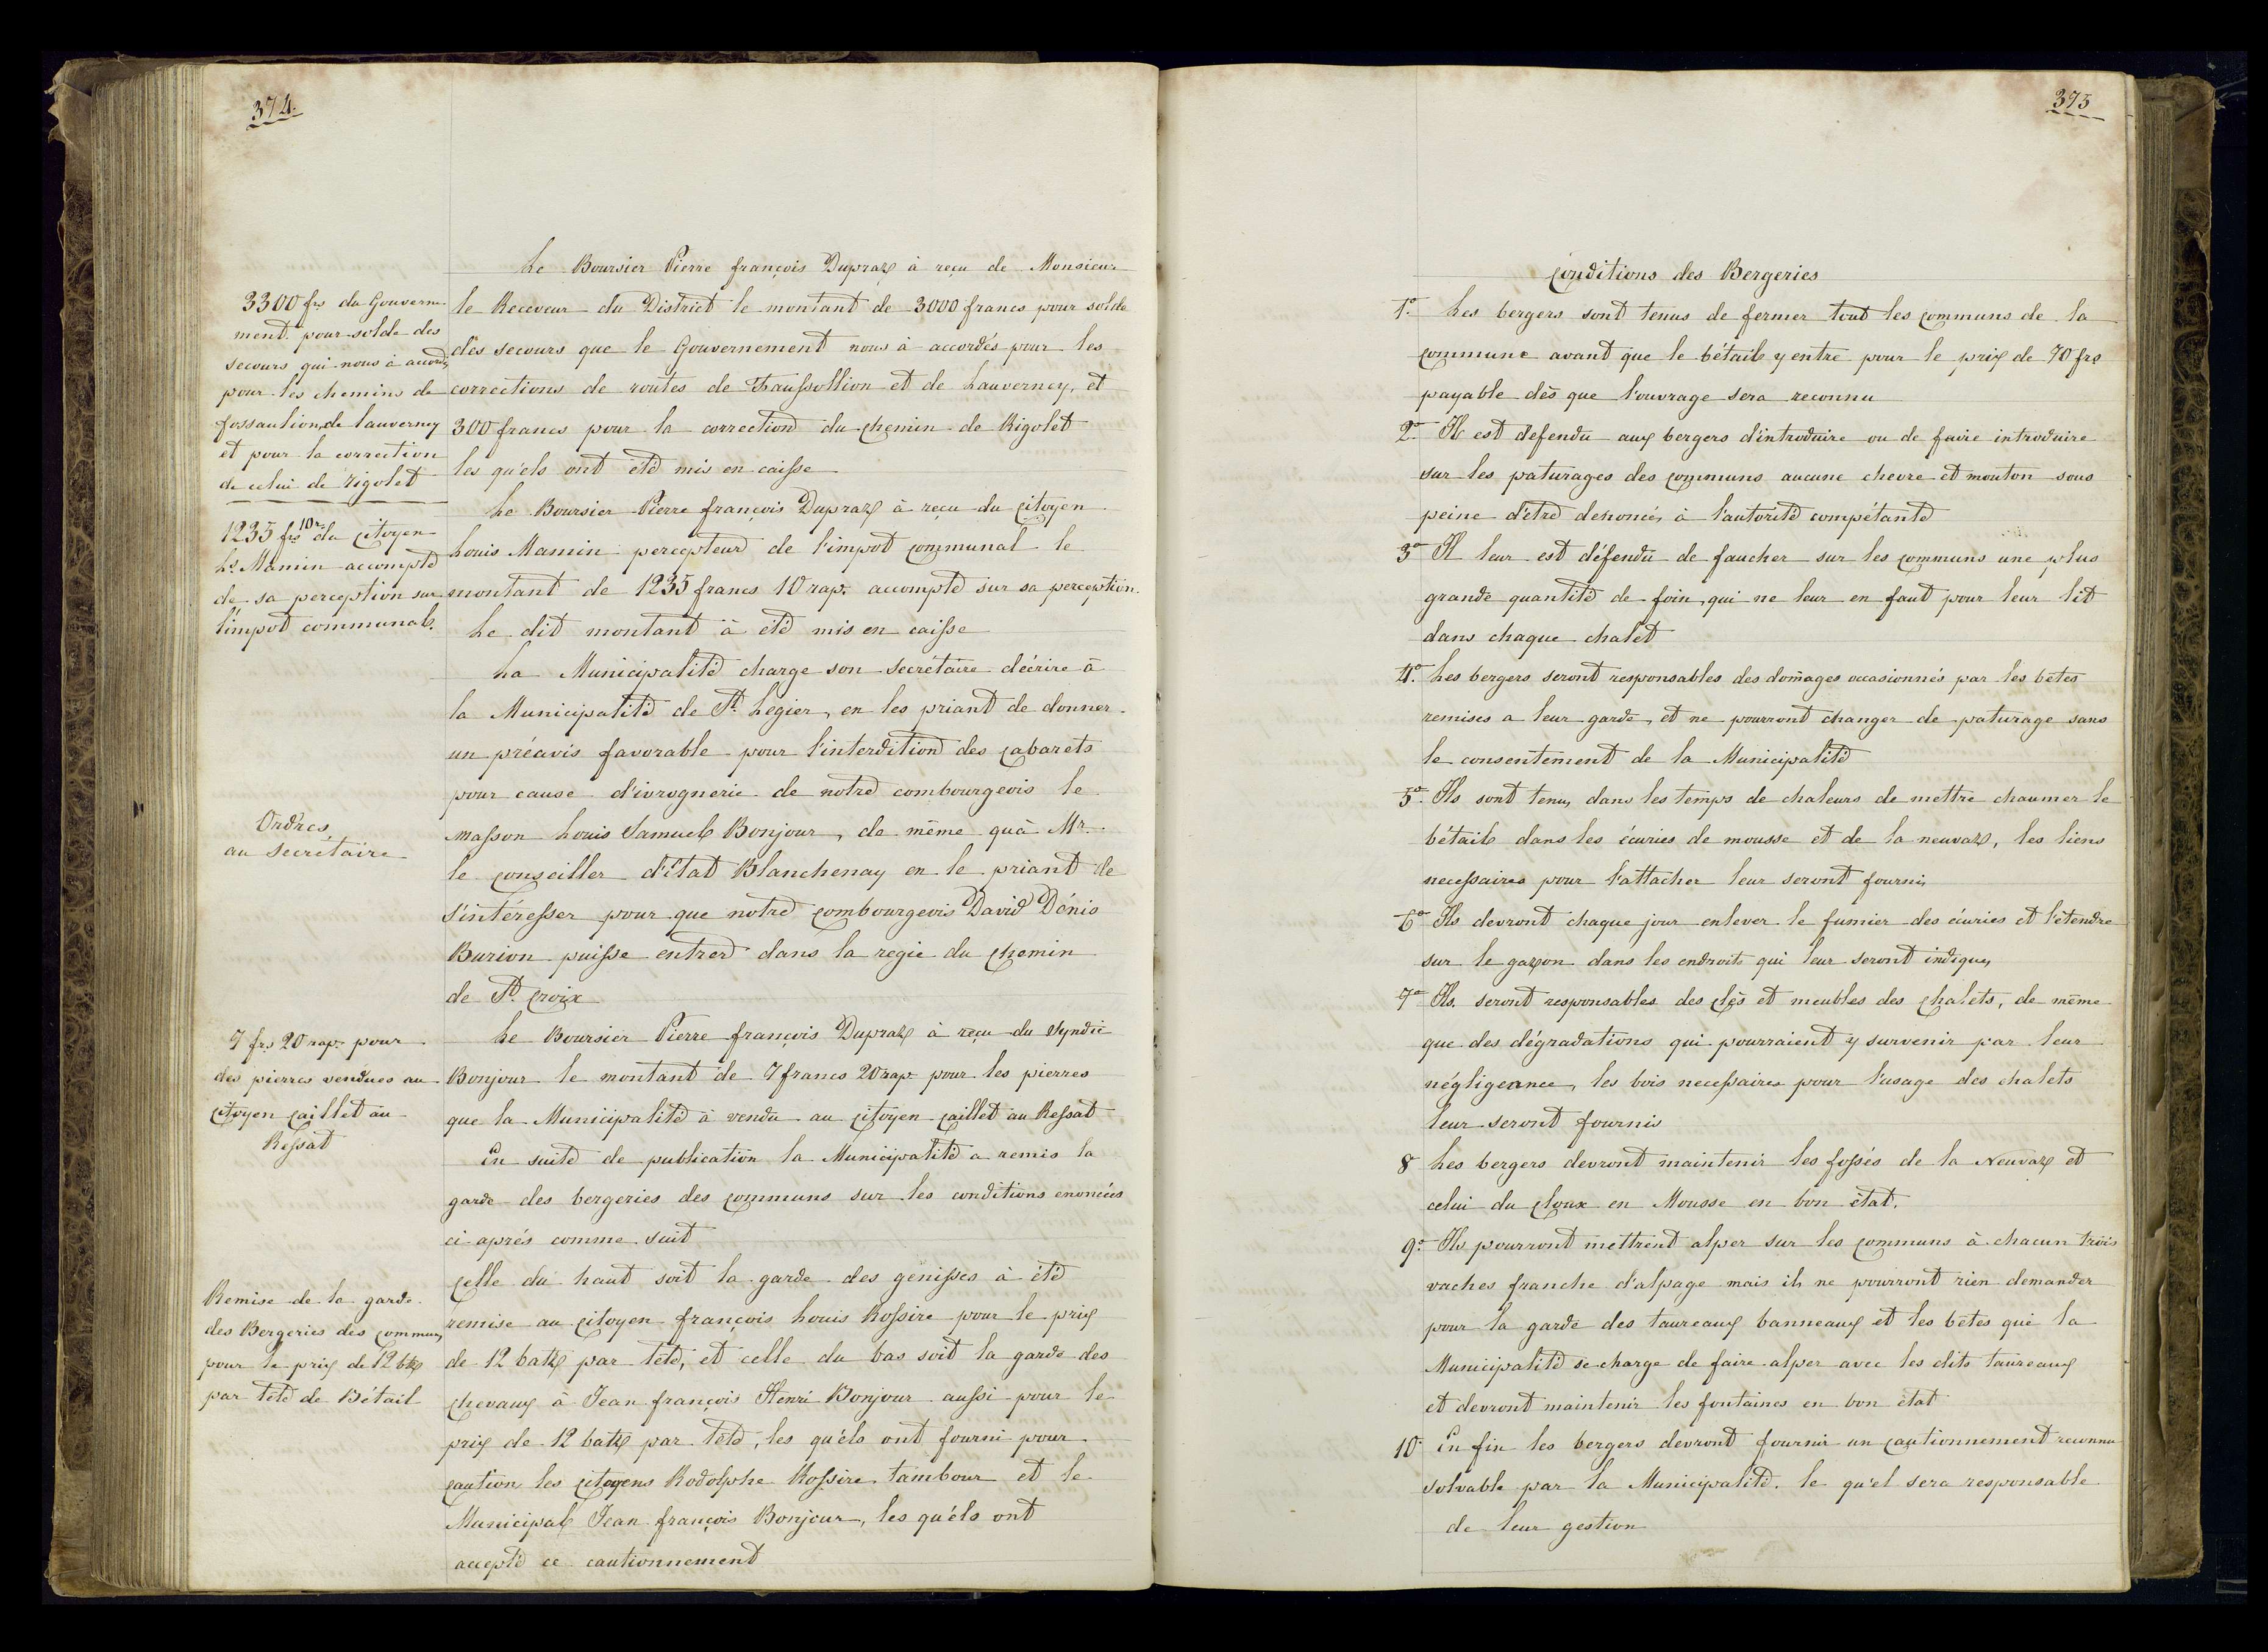 374.
3300 frs du Gouverne-
ment pour solde des
secours qui nous à accordés
pour les chemins de
fossaulion, de lauverney
et pour la correction
de celui de rigolet
1235 frs 10 r. du citoyen
Ls Mamin accompte
de sa perception sur
l'impot communal.
Ordres,
au Secrétaire
7 frs 20 rap. pour
des pierres vendues au
citoyen Caillet au
Ressat
Remise de la garde
des Bergeries des communs
pour le prix de 12 btz
par tête de Bétail
Le Boursier Pierre françois Dupraz à reçu de Monsieur
le Receveur du District le montant de 3000 francs pour solde
dès secours que le Gouvernement nous à accordés pour les
corrections de routes de Faussollion et de Lauverney, et
300 francs pour la correction du chemin de Rigolet
les qu'els ont été mis en caisse
Le Boursier Pierre françois Dupraz à reçu du Citoyen
Louis Mamin percepteur de l'impot communal le
montant de 1235 francs 10 rap. accompte sur sa perception.
Le dit montant à été mis en caisse
La Municipalité charge son Secrétaire décrire à
la Municipalité de St. Légier, en les priant de donner
un préavis favorable pour l'interdition des cabarets
pour cause d'ivrognerie de notre combourgeois le
masson Louis Samuel Bonjour, de même qu'à Mr.
le conseiller d'état Blanchenay en le priant de
s'intéresser pour que notre combourgeois David Dénis
Burion puisse entrer dans la regie du chemin
de St. Croix
Le Boursier Pierre françois Dupraz à reçu du Syndic
Bonjour le montant de 7 francs 20 rap. pour les pierres
que la Municipalité à vendu au citoyen Caillet au Ressat
En suite de publication, la Municipalité a remis la
garde des bergeries des communs sur les conditions enoncées
ci après comme suit
Celle du haut soit la garde des génisses à été
remise au citoyen françois Louis Rossire pour le prix
de 12 batz par tête, et celle du bas soit la garde des
chevaux à Jean françois Henri Bonjour aussi pour le
prix de 12 batz par tête, les qu'éls ont fourni pour
caution les citoyens Rodolphe Rossire tambour et le
Municipal Jean françois Bonjour, les qu'éls ont
accepté ce cautionnement
375
Conditions des Bergeries
1.o Les bergers sont tenus de fermer tout les communs de la
commune avant que le bétail y entre pour le prix de 70 frs
payable dès que l'ouvrage sera reconnu
2.o Il est défendu aux bergers d'introduire ou de faire introduire
sur les paturages des communs aucune chevre et mouton sous
peine d'être denoncés à l'autorité compétante
3.o Il leur est défendu de faucher sur les communs une plus
grande quantité de foin, qui ne leur en faut pour leur lit
dans chaque chalet
4.o Les bergers seront responsables des domages occasionnés par les bêtes
remises a leur garde, et ne pourront changer de paturage sans
le consentement de la Municipalité
5.o Ils sont tenus dans les temps de chaleurs de mettre chaumer le
bétail dans les écuries de mousse et de la neuvaz, les liens
necessaires pour l'attacher leur seront fournis
6.o Ils devront chaque jour enlever le fumier des écuries et l'étendre
sur le gazon dans les endroits qui leur seront indiqués
7.o Ils seront responsables des clés et meubles des chalets, de même
que des dégradations qui pourraient y survenir par leur
négligeance, les bois necessaires pour l'usage des chalets
leur seront fournis
8 Les bergers devront maintenir les fossés de la Neuvaz et
celui du Cloux en Mousse en bon état.
9.o Ils pourront mettrent alper sur les communs à chacun trois
vaches franche d'alpage mais ils ne pourront rien demander
pour la garde des taureaux banneaux et les bêtes que la
Municipalité se charge de faire alper avec les dits taureaux
et devront maintenir les fontaines en bon état
10 En fin les bergers devront fournir un cautionnement reconnu
solvable par la Municipalité. le qu'el sera responsable
de leur gestion